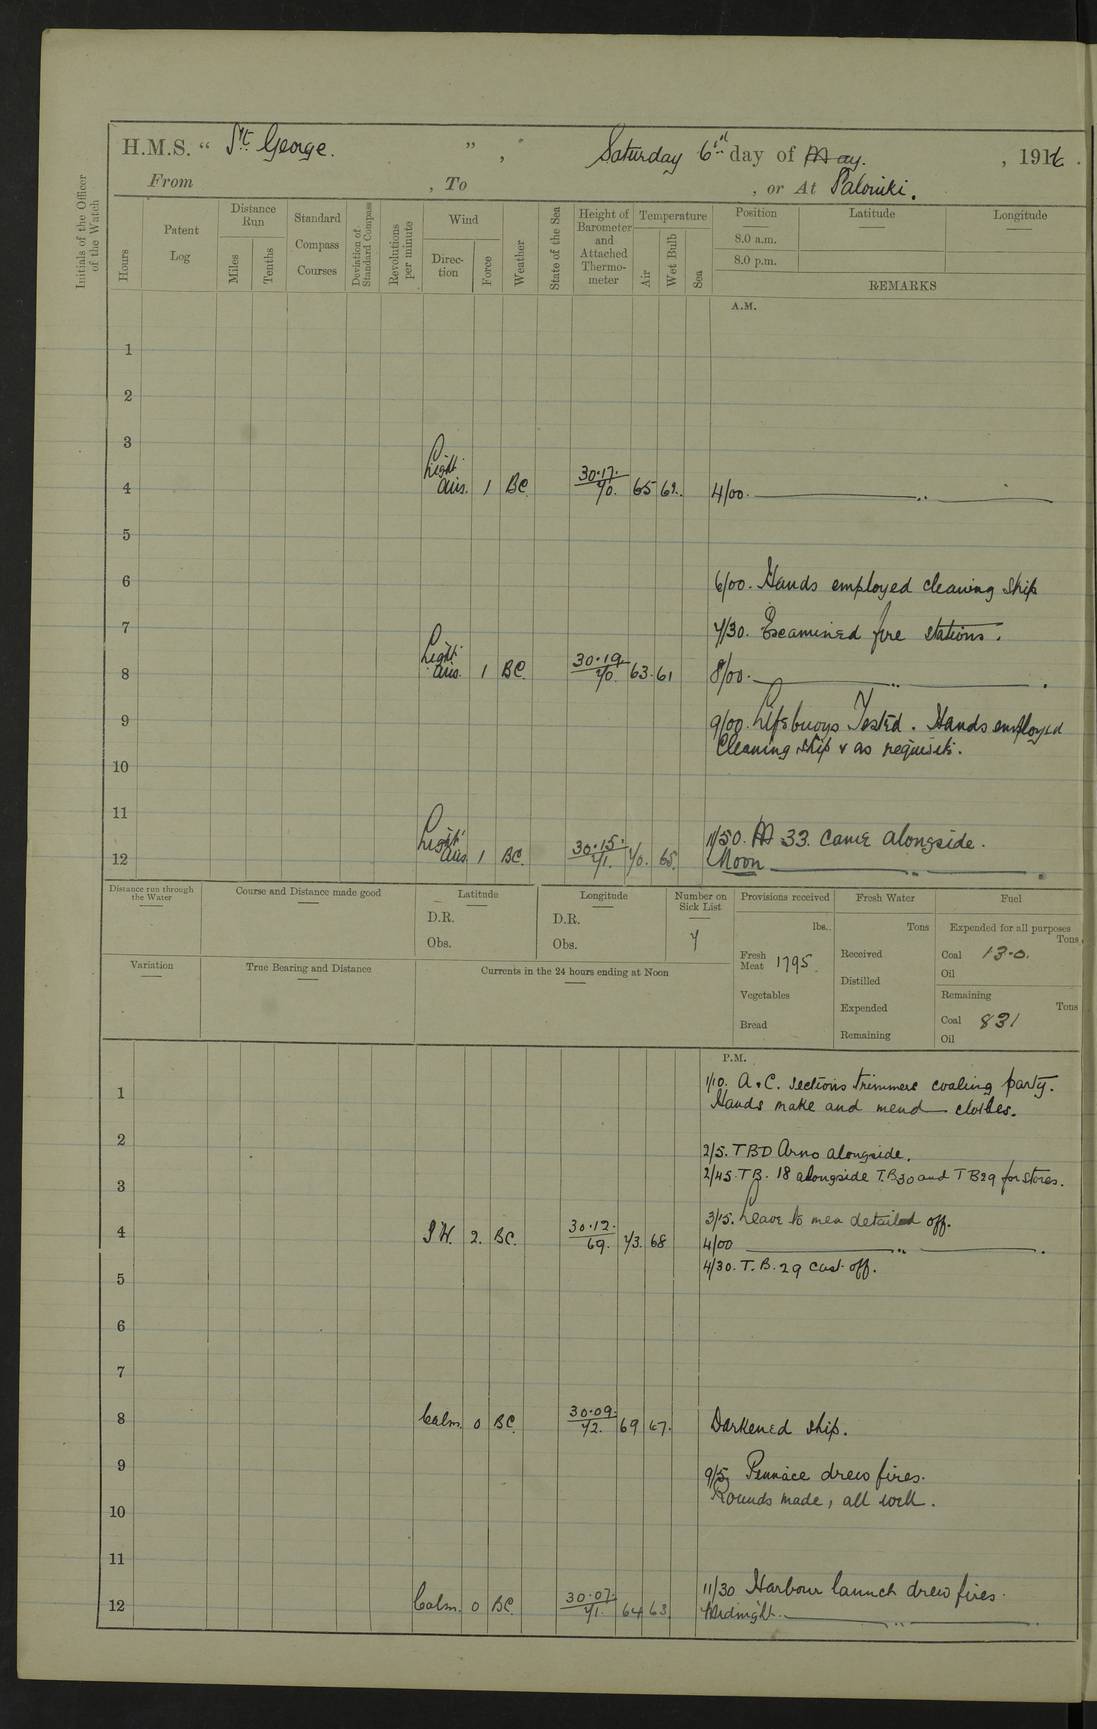 H.M.S. “ St. George. ” , Saturday 6th day of May. , 1916 .
From , To , or At Saloniki.
Initials of the Officer of the Watch
Hours
Patent Log
Distance Run
Miles
Tenths
Standard Compass Courses
Deviation of Standard Compass
Revolutions per minute
Wind
Direc-tion
Force
Weather
State of the Sea
Height of Barometer and Attached Thermo-meter
Temperature
Air
Wet Bulb
Sea
Position Latitude Longitude
8.0 a.m.
8.0 p.m.
REMARKS
A.M.
1
2
3
4 Light airs. 1 BC 30.17. 70. 65 62. 4/00. ——— „ ———
5
6 6/00. Hands employed cleaning ship
7 7/30. Examined fire stations.
8 Light airs. 1 BC. 30.19. 70. 63. 61 8/00. ——— „ ———
9 9/00. Lifebuoys Tested. Hands employed
Cleaning ship & as requisite.
10
11
11/50. M 33. came alongside.
12 Light airs 1 BC. 30.15. 71. 70. 65. Noon ——— „ ———
Distance run through the Water
Course and Distance made good
Latitude
D.R.
Obs.
Longitude
D.R.
Obs.
Number on Sick List
7
Provisions received
lbs.
Fresh Meat 1795.
Vegetables
Bread
Fresh Water
Tons
Received
Distilled
Expended
Remaining
Fuel
Expended for all purposes
Tons
Coal 13.0.
Oil
Remaining
Tons
Coal 831
Oil
Variation
True Bearing and Distance
Currents in the 24 hours ending at Noon
P.M.
1 1/10. A & C. sections trimmers coaling party.
Hands make and mend clothes.
2 2/5. TBD Arno alongside.
2/45. TB. 18 alongside T.B30 and TB29 for stores.
3
3/15. Leave to men detailed off.
4 SW. 2. BC. 30.12. 69. 73. 68 4/00 ——— „ ———
4/30. T.B. 29 cast off.
5
6
7
8 Calm. 0 BC. 30.09. 72. 69 67. Darkened ship.
9 9/5 Pinnace drew fires.
Rounds made, all well.
10
11
11/30 Harbour launch drew fires.
12 Calm. 0 BC. 30.07. 71. 64 63. Midnight. ——— „ ———